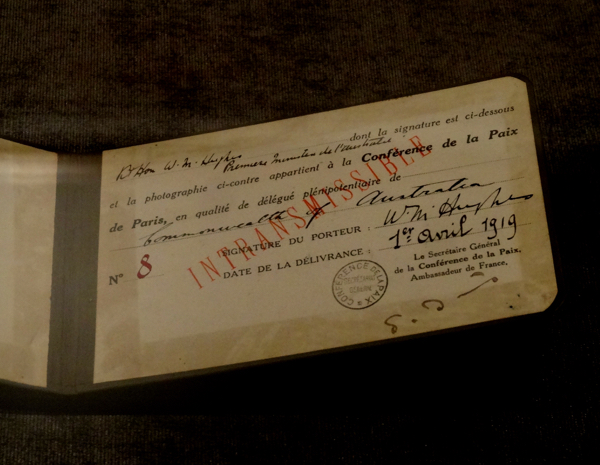 dont la signature est ci-dessous
Rt Hon W. M. Hughes Premier Ministre de l'Australie
et la photographie ci-contre appartient à la Conférence de la Paix
de Paris, en qualité de délégué plénipotentiaire de
Commonwealth of Australia
SIGNATURE DU PORTEUR : W M Hughes
N° 8 DATE DE LA DÉLIVRANCE : 1er avril 1919
INTRANSMISSIBLE
Le Secrétaire Général
de la Conférence de la Paix,
Ambassadeur de France,
CONFÉRENCE DE LA PAIX